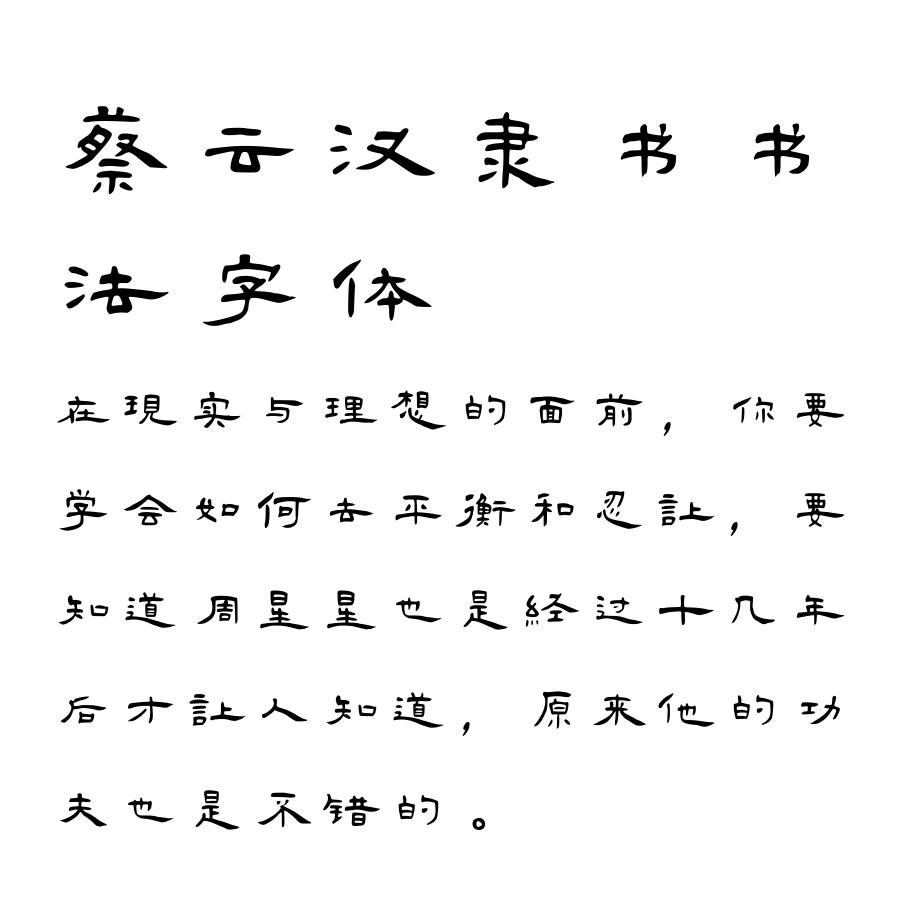 蔡云汉隶书书
法字体
在現实与理想的面前，你要
学会如何去平衡和忍让，要
知道周星星也是経过十几年
后才让人知道，原来他的功
夫也是不错的。